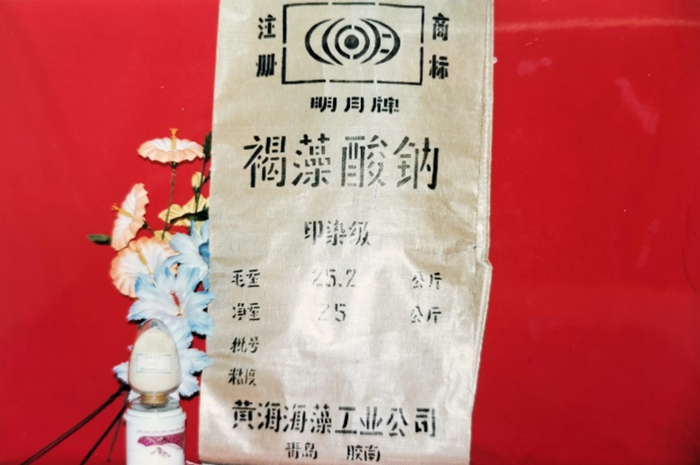 注册 商标
明月牌
褐藻酸钠
印染级
毛重 25.2 公斤
净重 25 公斤
批号
粘度
黄海海藻工业公司
青岛 胶南